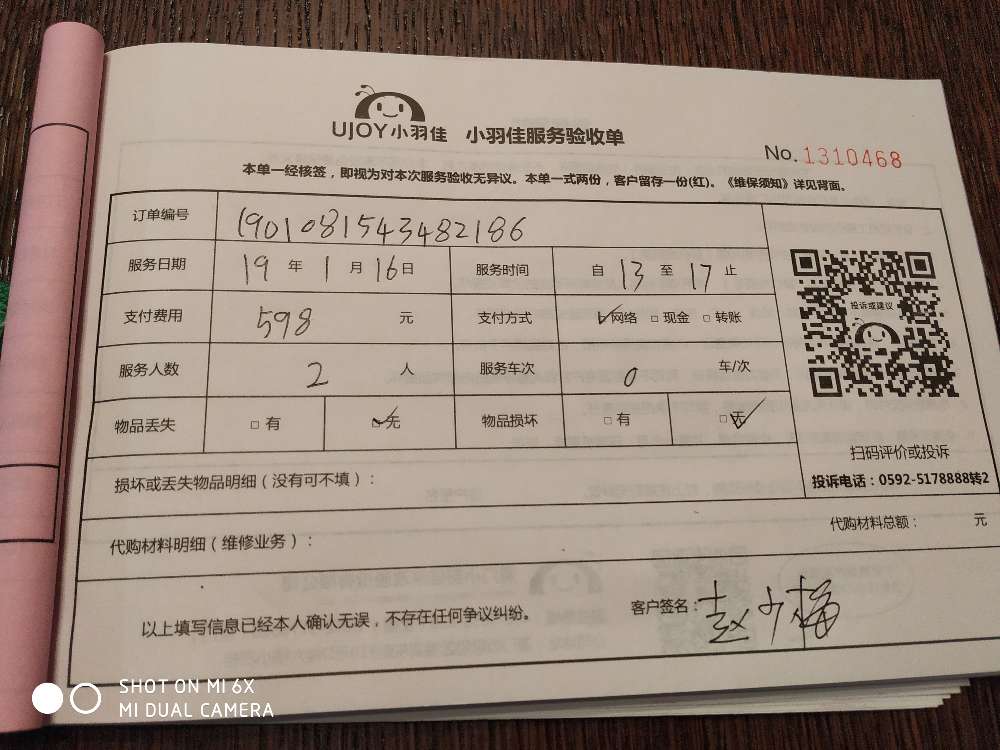 UJOY小羽佳 小羽佳服务验收单
No. 1310468
本单一经核签，即视为对本次服务验收无异议。本单一式两份，客户留存一份(红)。《维保须知》详见背面。
订单编号 1901081543482186
服务日期 19 年 1 月 16 日 服务时间 自 13 至 17 止
支付费用 598 元 支付方式 ☑网络 □现金 □转账
服务人数 2 人 服务车次 0 车/次
物品丢失 □有 ☑无 物品损坏 □有 ☑无
投诉或建议
扫码评价或投诉
投诉电话：0592-5178888转2
损坏或丢失物品明细（没有可不填）：
代购材料明细（维修业务）： 代购材料总额： 元
以上填写信息已经本人确认无误，不存在任何争议纠纷。 客户签名：赵少梅
SHOT ON MI 6X
MI DUAL CAMERA